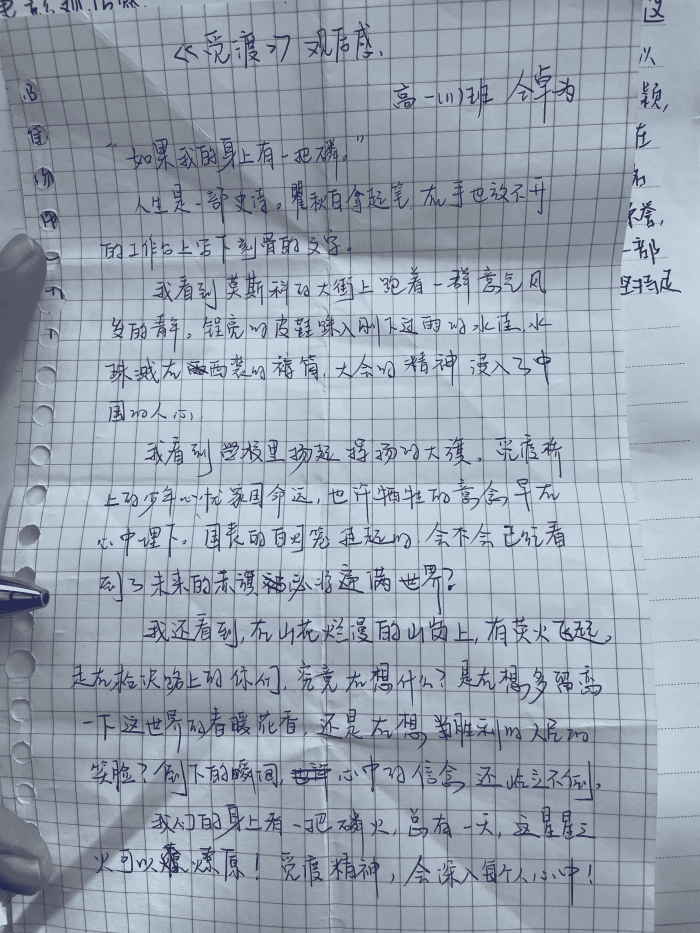 《觉渡》观后感
高一(11)班
"如果我的身上有一把磷。"
人生是一部史诗。瞿秋白拿起笔,在手也放不开
的工作台上写下刻骨的文字。
我看到莫斯科的大街上跑着一群意气风
发的青年,锃亮的皮鞋踩入刚下过雨的水洼,水
珠溅在西装的裤筒,大会的精神浸入了中
国的人心。
我看到学校里扬起的大旗。觉渡桥
上的少年心忧家国命运,也许牺牲的意念早在
心中埋下。国表的起的,会不会已经看
到了未来的赤旗必将遍满世界?
我还看到,在山花烂漫的山岗上,有荧火飞起。
走在枪决路上的你们,究竟在想什么?是在想多留恋
一下这世界的春暖花香,还是在想当胜利的人民的
笑脸?倒下的瞬间,心中的信念还屹立不倒。
我们的身上有一把磷火,总有一天,这星星之
火可以燎原!觉渡精神,会深入每个人心中!
这
以
颖,
在
誉,
一部